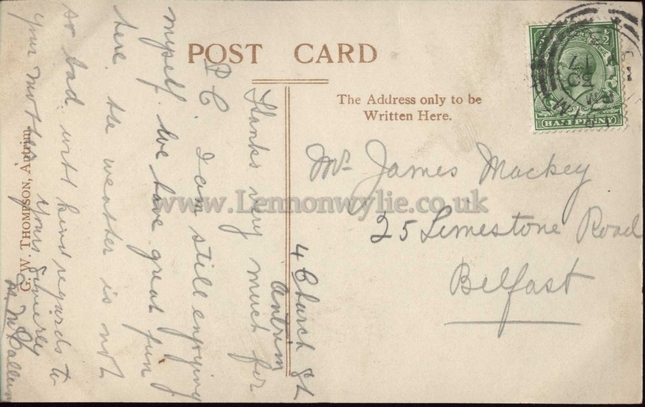 POST CARD
The Address only to be
Written Here.
HALFPENNY
Mr James Mackey
25 Limestone Road
Belfast
4 Church St
Antrim
Thanks very much for
P C. I am still enjoying
myself We have great fun
here. the weather is not
so bad. with kind regards to
your mother. Yours Sincerely
M McCallum
G. W. THOMPSON, Antrim.
www.Lennonwylie.co.uk